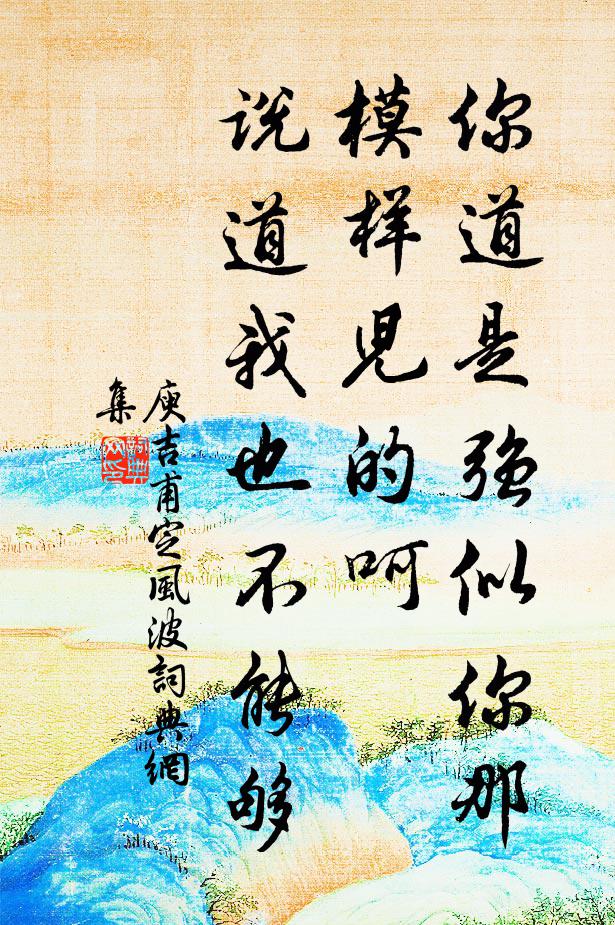 你道是強似你那
模样児的呵
说道我也不能够
庾吉甫定風波詞典網
集